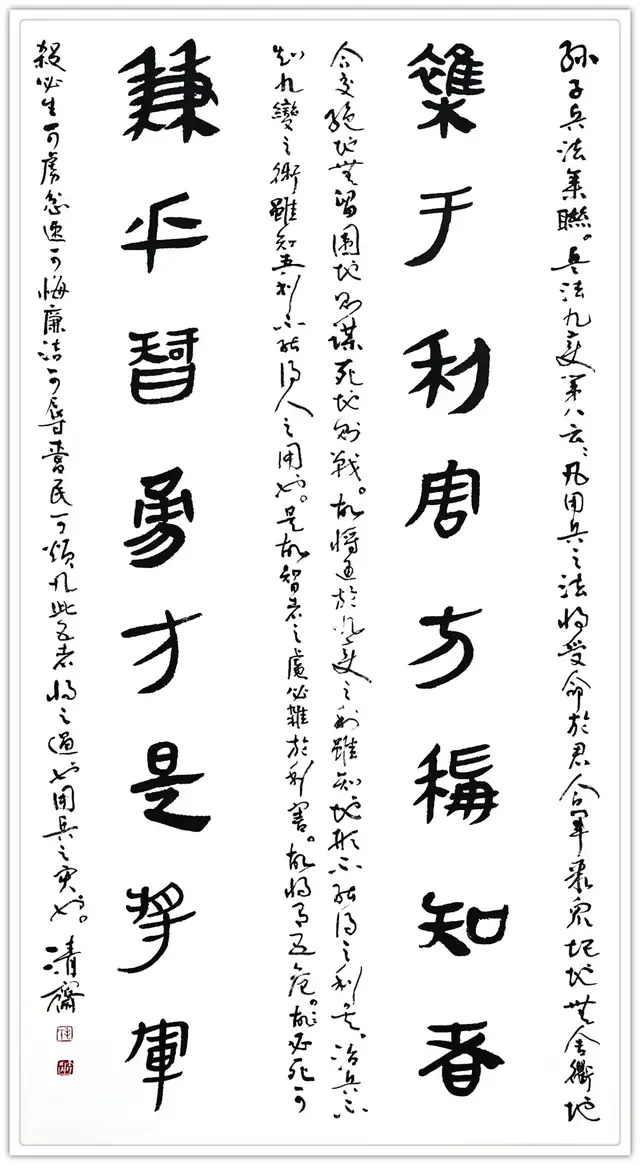 孫子兵法集聯。兵法九变第八云、凡用兵之法将受命於君合軍聚眾圮地無舍衢地
雜于利害方稱知者
合交絕地無留圍地則謀死地則戰。故将通於九变之利雖知地形不能得之利矣。治兵不
知九變之術雖知五利不能得人之用也。是故智者之慮必雜於利害。故将有五危。故必死可
兼乎智勇才是將軍
殺必生可虜忿速可悔廉洁可辱愛民可煩凡此五者将之過也用兵之灾也。清齋